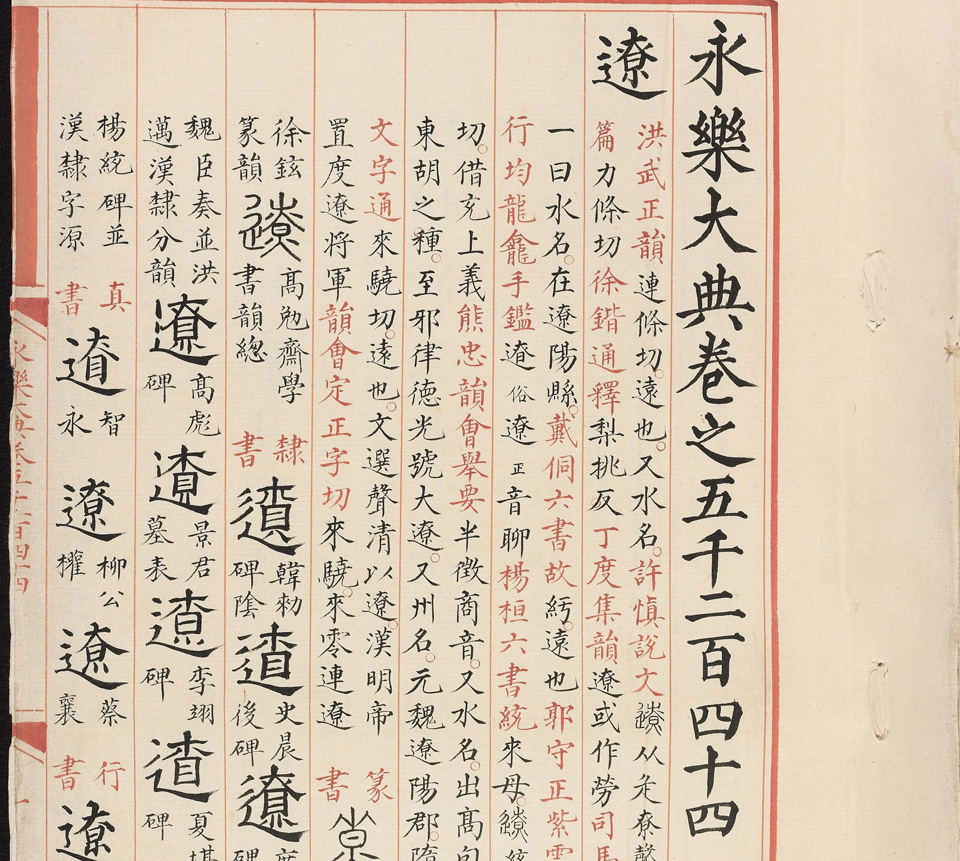 永樂大典卷之五千二百四十四
遼
洪武正韻連條切。遠也。又水名。許慎說文遼从辵尞聲
篇力條切徐鍇通釋梨挑反丁度集韻遼或作勞司馬
一曰水名。在遼陽縣。戴侗六書故紆。遠也郭守正紫雲
行均龍龕手鑑遼俗遼正音聊楊桓六書統來母。遼統
切。借充上義熊忠韻會舉要半徵商音。又水名。出高句
東胡之種。至邪律德光號大遼。又州名。元魏遼陽郡。隋
文字通來驍切。遠也。文選聲清以遼。漢明帝
置度遼將軍韻會定正字切來驍。來零連遼
篆書
徐鉉篆韻 遼 高勉齋學書韻總 隸書 遼 韓勑碑陰 遼 史晨後碑 遼
魏臣奏並洪邁漢隸分韻 遼 高彪碑 遼 景君墓表 遼 李翊碑 遼 夏堪碑
楊統碑並漢隸字源 真書 遼 智永 遼 柳公權 遼 蔡襄 行書 遼
永樂大典卷五千二百四十四